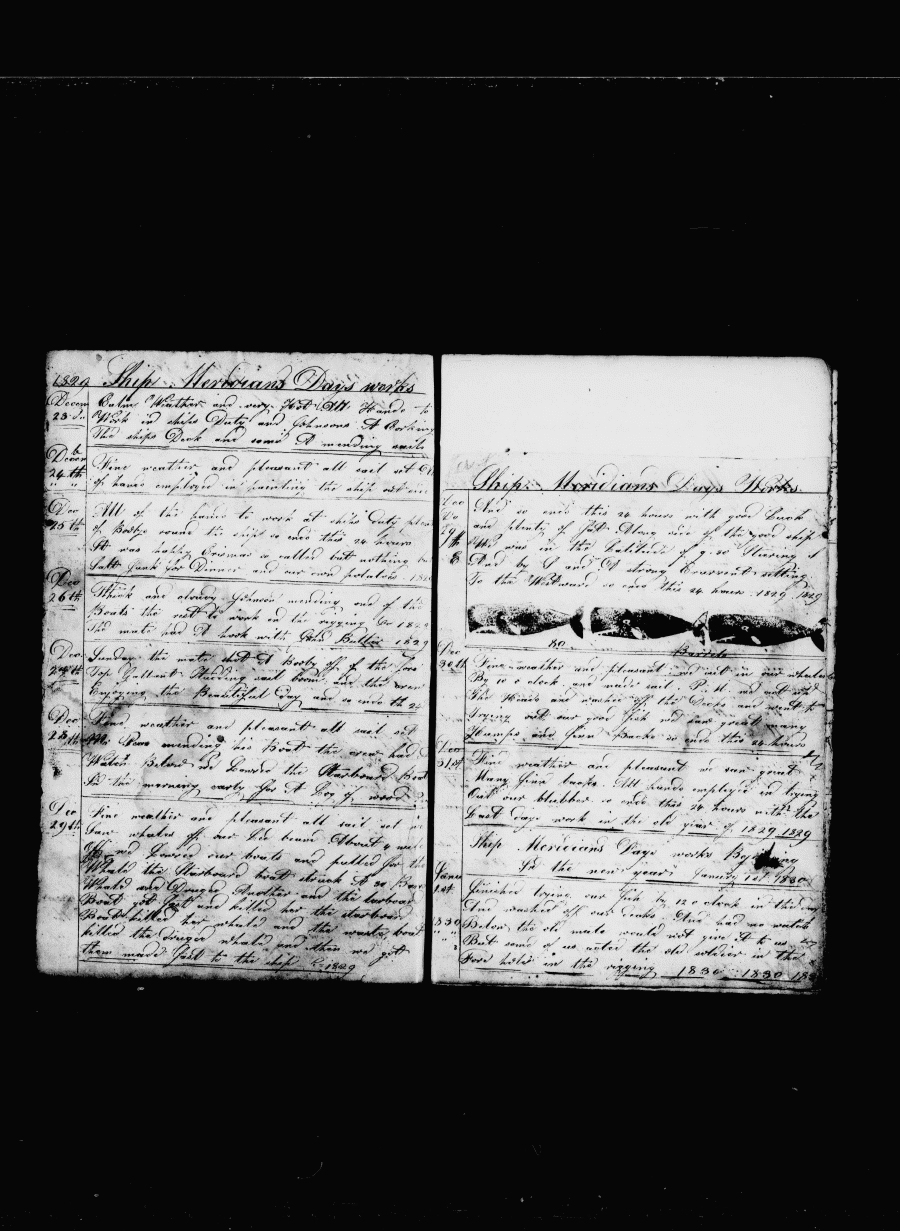 1829 Ship Meridians Days works
Decem 23 Calm Weather and very Hot All Hands to
Work in ships Duty and Johnsons A Corking
The ships Deck and some A mending sails
Decem 24th Fine weather and pleasant all sail set
of hands employed in painting the ship out
Dec 25th All of the hands to work at ships duty
of Bobys round the ship so ends this 24 hours
It was happy Crismas so called but nothing
Salt Junk for Dinner and our own potatoes
Dec 26th Thick and cloudy Johnson mending one of the
Boats the rest to work in the rigging 1829
The mate had A work with 1829
Dec 27th Sunday the mate shot A Booby of of the fore
Top Gallant Studding sail boom and the crew
Enjoying the Beautiful day and so ends th 24
Dec 28th Fine weather and pleasant all sail set
mending his Boat the crew had
Watch Below we Lowerd the Starboard Boat
In the morning early for A Log of wood
Dec 29th Fine weather and pleasant all sail set
Saw whales of our Lee beam About 4
Off we Lowerd our boats and pulled for the
Whale the Starboard boat struck A 20
Whale and Another and the larboard
Boat got fast and killed her the starboard
Boat killed her whale and the waist boat
killed the whale and then we got
them made fast to the ship 1829
Ship Meridians Days Works
Dec 29th And so ends this 24 hours with good Luck
and plenty of fish Along side of the good ship
Who was in the Latitude of 9.30 Stearing
And by A strong Current setting
To the Westward so ends this 24 hours 1829 1829
80 Barrels
Dec 30th Fine weather and pleasant we cut in our whales
By 10 o clock and made sail P.M. we
The Heads and washed of the Decks and went to
Trying out our good fish we saw great many
Humps and finn Backs so ends this 24 hours
Dec 31st Fine weather and pleasant we saw great
Many finn backs All hands employed in trying
Out our blubber so ends this 24 hours with the
Last Days work in the old year of 1829 1829
Ship Meridians Days works Begining
In the new year January 1st 1830
Janu 1st 1830 Finished trying our fish by 12 o clock in the
And washed of our decks And had no watch
Below the old mate would not give it to us
But some of us noted the old soldier in the
Fore hole in the rigging 1830 1830